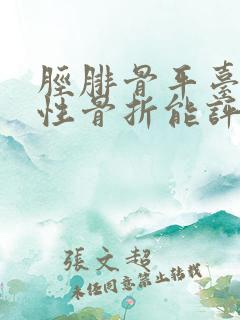 脛腓骨平臺
性骨折能評
張文超
未经同意禁止转载